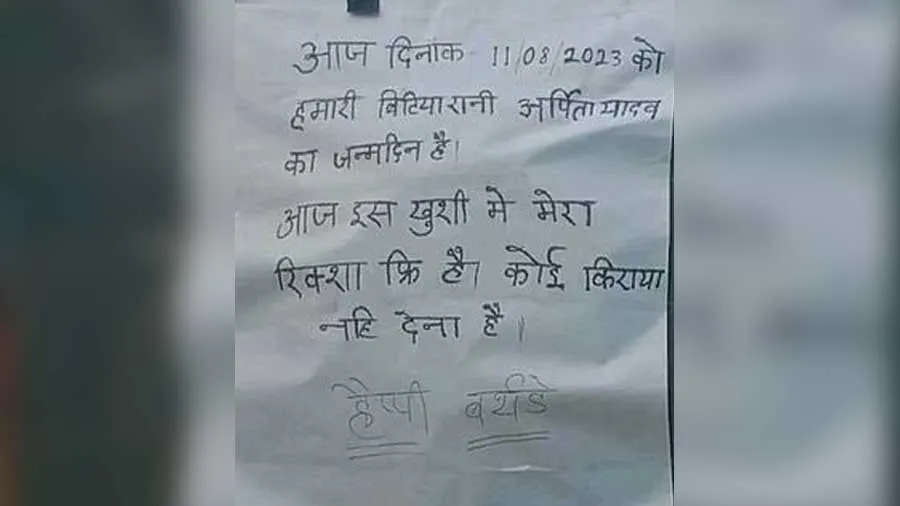 आज दिनांक 11/08/2023 को
हमारी बिटियारानी अर्पिता यादव
का जन्मदिन है।
आज इस खुशी मे मेरा
रिक्शा फ्रि है। कोई किराया
नहि देना है।
हैप्पी बर्थडे